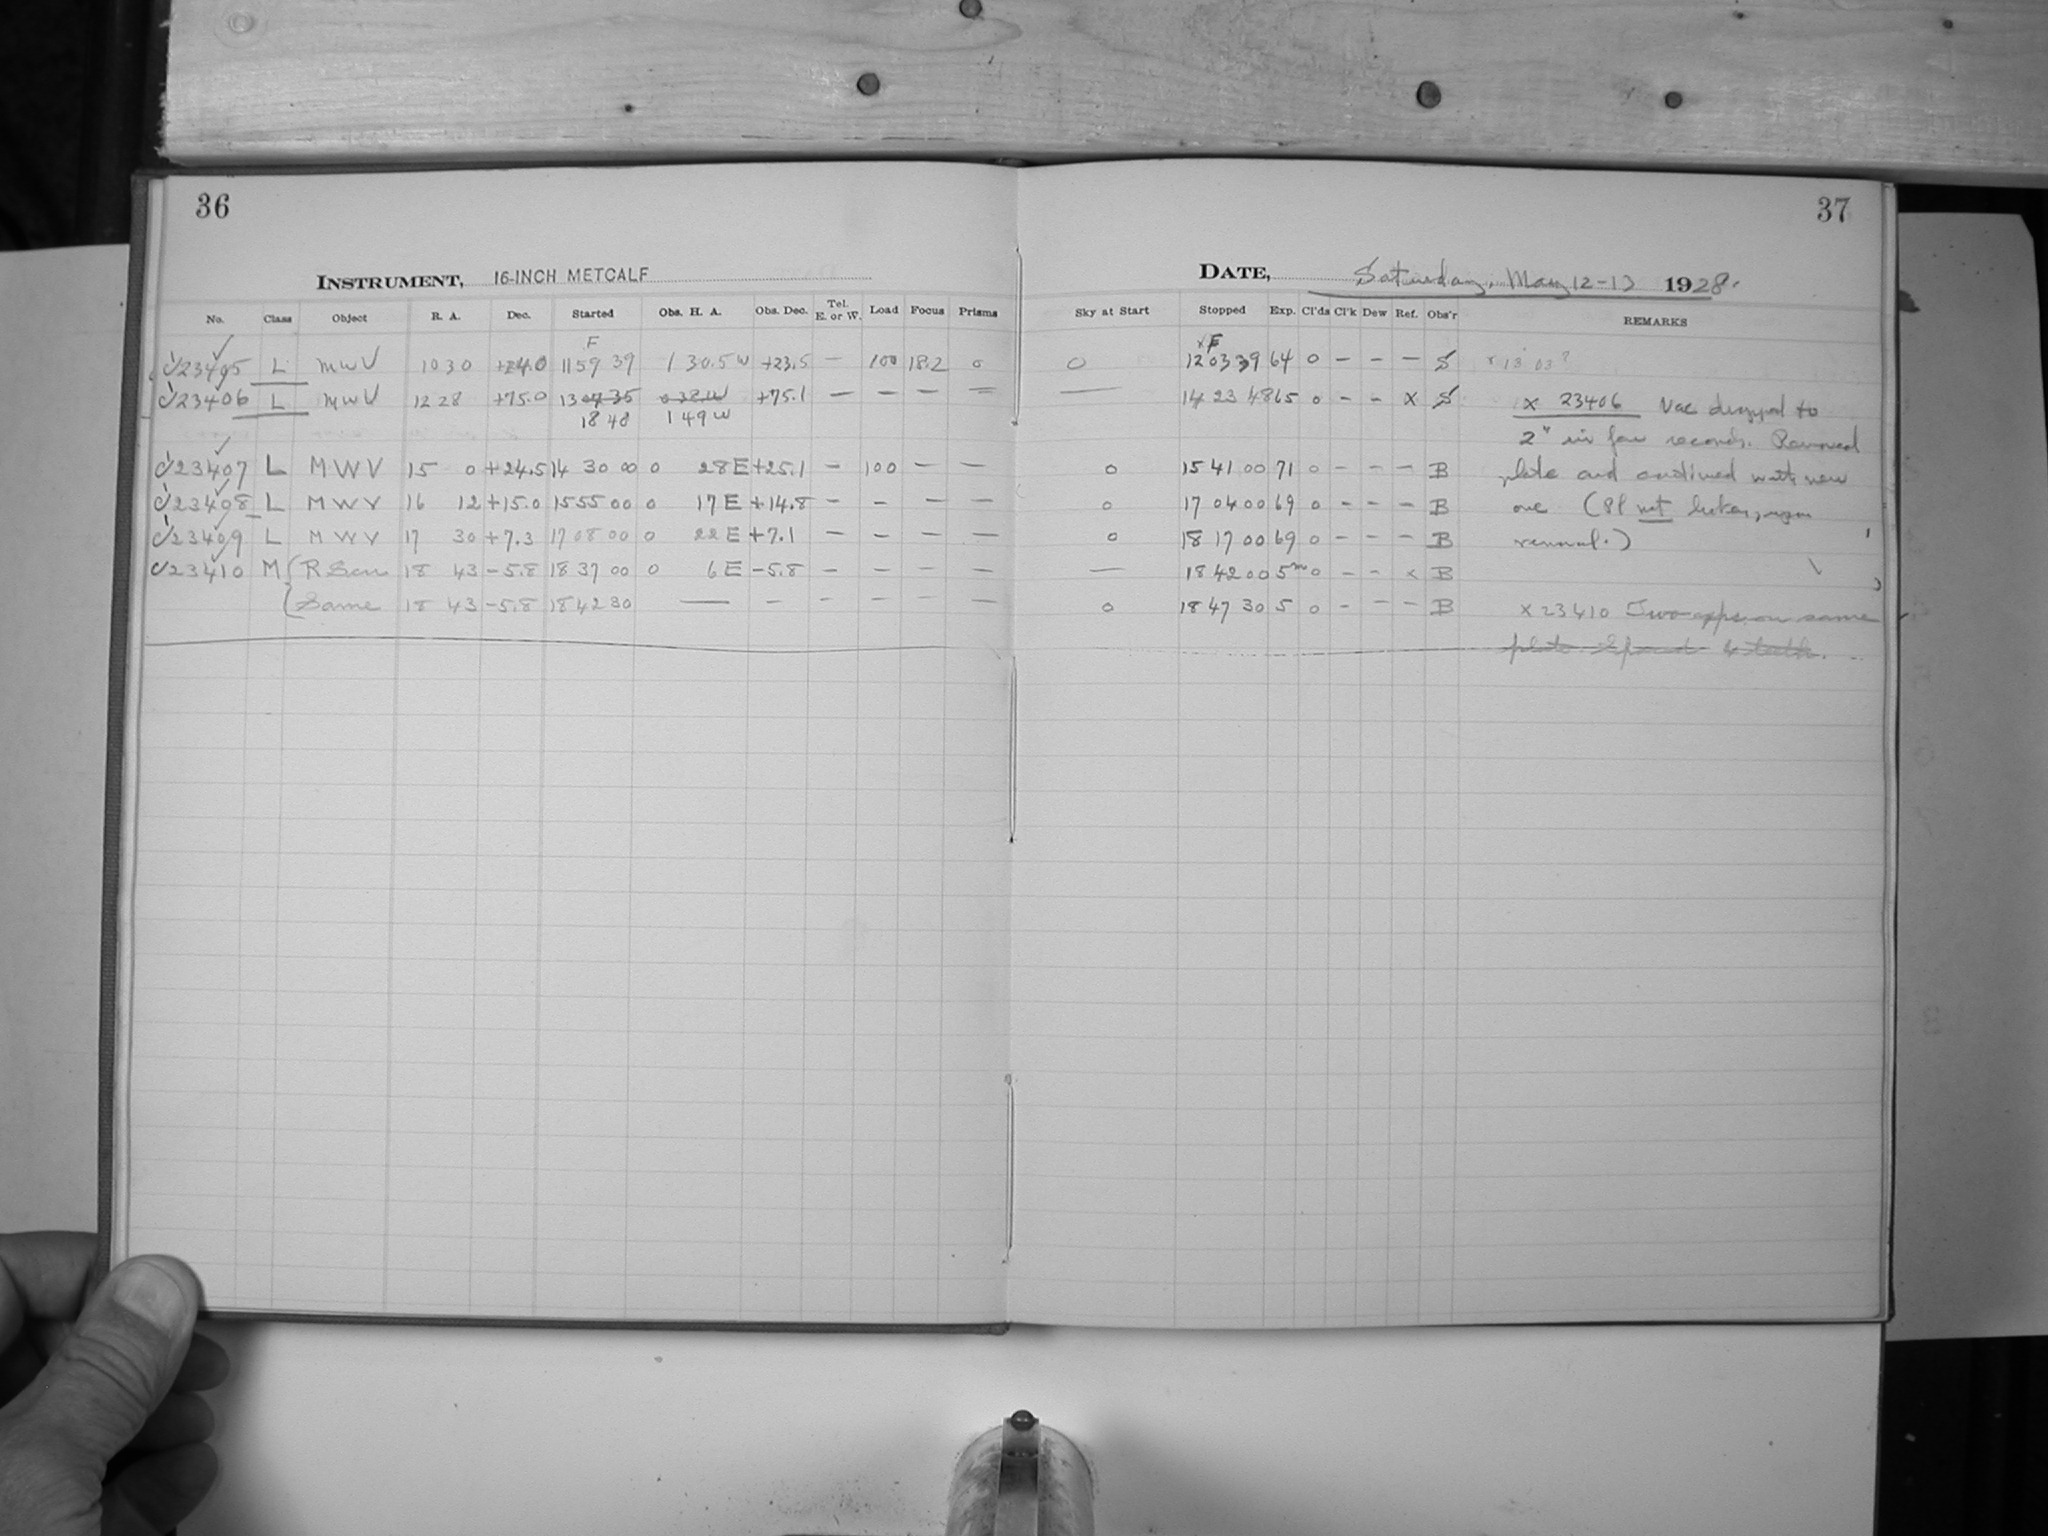 36
INSTRUMENT, 16-INCH METCALF
No. Class Object R. A. Dec. Started Obs. H. A. Obs. Dec. Tel. E. or W. Load Focus Prisms
F
23405 L MWV 10 30 +24.0 11 59 39 1 30.5 W +23.5 — 100 18.2 0
23406 L MWV 12 28 +75.0 13 07 35 0 38 W +75.1 — — — —
18 48 1 49 W
23407 L MWV 15 0 +24.5 14 30 00 0 28 E +25.1 — 100 — —
23408 L MWV 16 12 +15.0 15 55 00 0 17 E +14.8 — — — —
23409 L MWV 17 30 +7.3 17 08 00 0 22 E +7.1 — — — —
23410 M R Scu 18 43 -5.8 18 37 00 0 6 E -5.8 — — — —
Same 18 43 -5.8 18 42 30 — — — — — —
37
DATE, Saturday, May 12-13 1928.
Sky at Start Stopped Exp. Cl'ds Cl'k Dew Ref. Obs'r REMARKS
x F
0 12 03 39 64 0 — — — S x 13 03?
— 14 23 48 65 0 — — x S x 23406 Vac dropped to
2" in few seconds. Removed
0 15 41 00 71 0 — — — B plate and continued with new
0 17 04 00 69 0 — — — B one (Pl not broken, upon
0 18 17 00 69 0 — — — B removal.)
— 18 42 00 5m 0 — — x B
0 18 47 30 5 0 — — — B x 23410 Two exps. on same
plate 4 teeth.